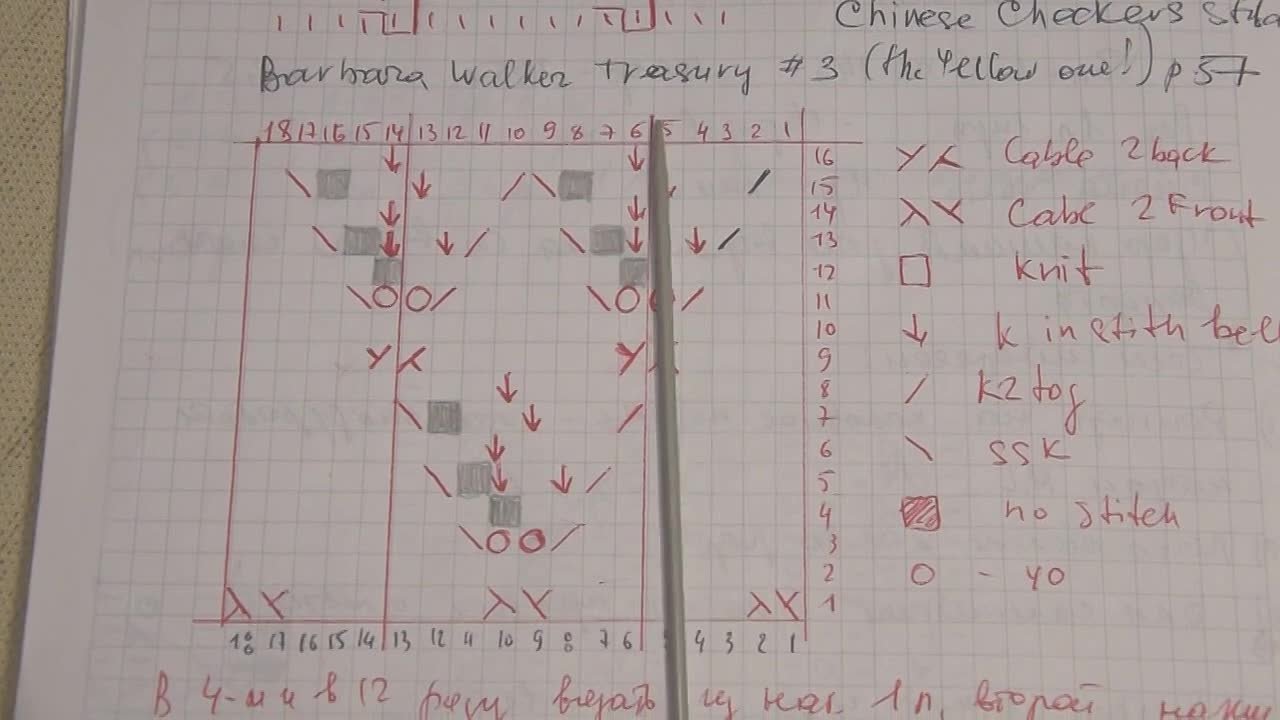 Chinese Checkers
Barbara Walker treasury #3 (the Yellow one!) p 57
18 17 16 15 14 13 12 11 10 9 8 7 6 5 4 3 2 1
16
15
14
13
12
11
10
9
8
7
6
5
4
3
2
1
Cable 2 back
Cabe 2 Front
knit
k in stith bel
k2 tog
ssk
no stitch
O - yo
18 17 16 15 14 13 12 11 10 9 8 7 6 4 3 2 1
В 4-м и в 12 ряду вязать из нак. 1 п, второй